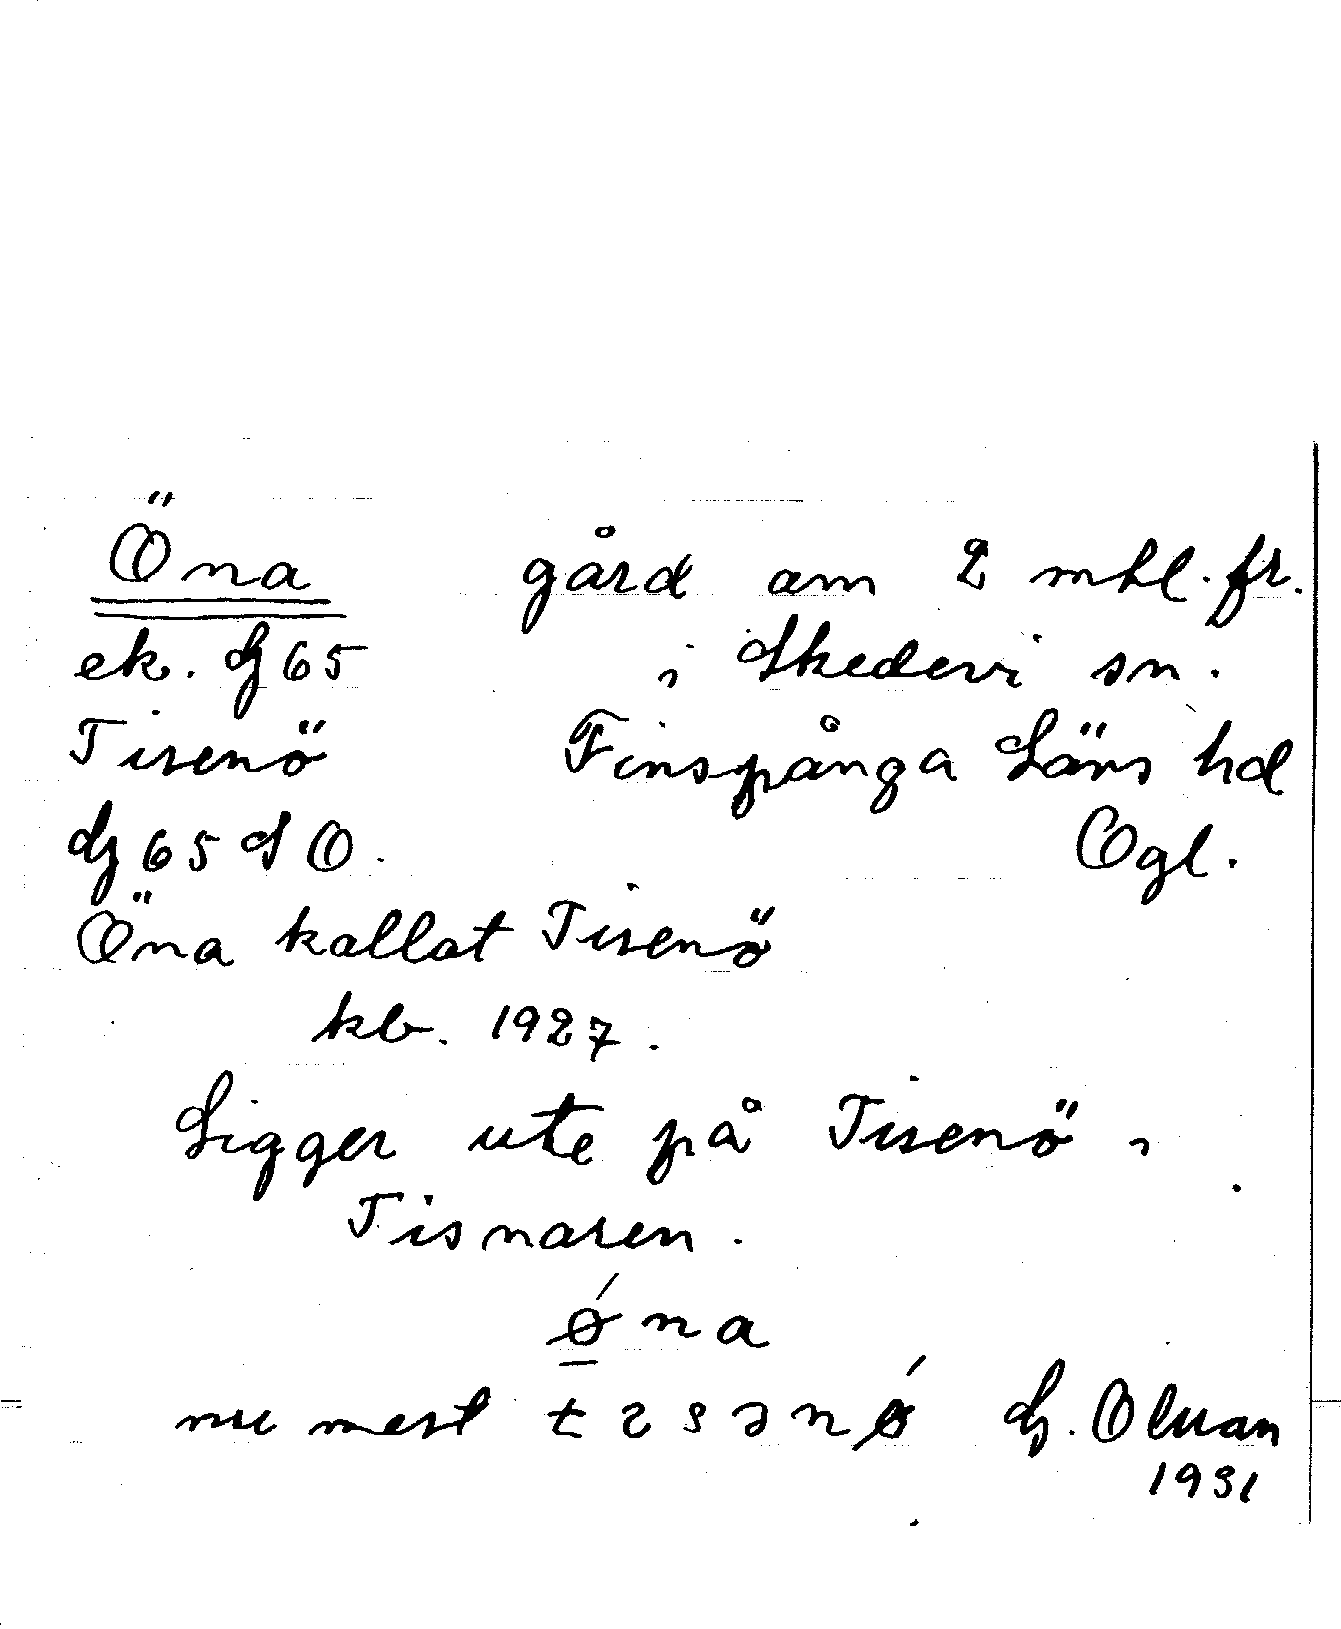 Öna gård om 2 mtl. fr.
ek. G 65 i Skedevi sn.
Tisenö Finspånga Läns hd
G 65 S O. Ögl.
Öna kallat Tisenö
kb. 1927.
Ligger ute på Tisenö i
Tisnaren.
ǿna
nu mest tɩsənǿ G.
1931